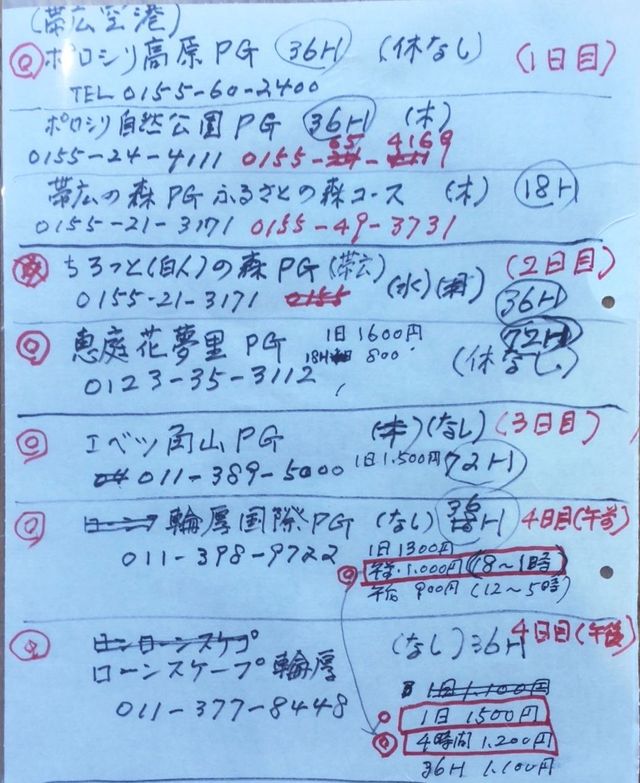 (帯広空港)
◎ ポロシリ高原PG 36H (休なし) (1日目)
TEL 0155-60-2400
ポロシリ自然公園PG 36H (木)
0155-24-4111 0155-65-4169
帯広の森PG ふるさとの森コース (木) 18H
0155-21-3171 0155-49-3731
ちろっと(自人)の森PG (帯広) (水) (2日目)
0155-21-3171 36H
◎ 恵庭花夢里PG 1日1600円 72H
18H 800 (休なし)
0123-35-3112
◎ エベツ角山PG (なし) (3日目)
011-389-5000 1日1,500円 72H
輪厚国際PG (なし) 36H 4日目(午前)
011-398-9722 1日1300円
◎ 午前・1,000円 (8〜1時)
午后 900円 (12〜5時)
ローンスケープ輪厚 (なし) 36H 4日目(午後)
011-377-8448
1日1,100円
○ 1日 1500円
◎ 4時間 1,200円
36H 1,100円